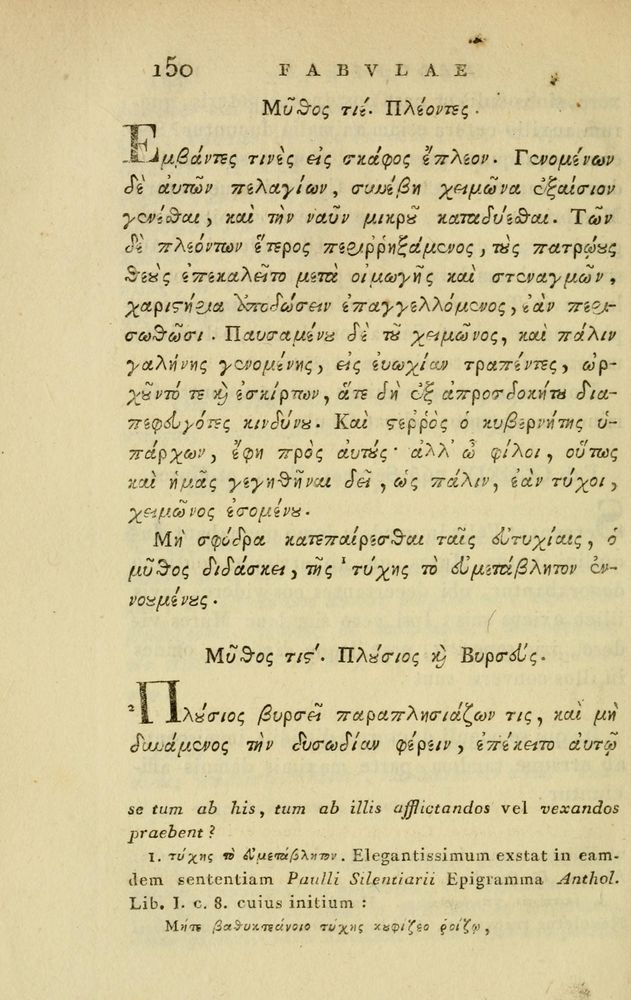 150 FABVLAE
Μῦθος τιέ. Πλέοντες.
Ἐμβάντες τινὲς εἰς σκάφος ἔπλεον. Γενομένων
δὲ αὐτῶν πελαγίων, συνέβη χειμῶνα ἐξαίσιον
γενέσθαι, καὶ τὴν ναῦν μικροῦ καταδύεσθαι. Τῶν
δὲ πλεόντων ἕτερος περιῤῥηξάμενος, τοὺς πατρῴους
θεοὺς ἐπεκαλεῖτο μετὰ οἰμωγῆς καὶ στεναγμῶν,
χαριστήρια ἀποδώσειν ἐπαγγελλόμενος, ἐὰν περι-
σωθῶσι. Παυσαμένου δὲ τοῦ χειμῶνος, καὶ πάλιν
γαλήνης γενομένης, εἰς εὐωχίαν τραπέντες, ὠρ-
χοῦντό τε καὶ ἐσκίρτων, ἅτε δὴ ἐξ ἀπροσδοκήτου δια-
πεφευγότες κινδύνου. Καὶ στεῤῥὸς ὁ κυβερνήτης ὑ-
πάρχων, ἔφη πρὸς αὐτούς· ἀλλ' ὦ φίλοι, οὕτως
καὶ ἡμᾶς γεγηθῆναι δεῖ, ὡς πάλιν, ἐὰν τύχοι,
χειμῶνος ἐσομένου.
Μὴ σφόδρα κατεπαίρεσθαι ταῖς εὐτυχίαις, ὁ
μῦθος διδάσκει, τῆς ¹ τύχης τὸ εὐμετάβλητον ἐν-
νουμένους.
Μῦθος τιϛ΄. Πλούσιος καὶ Βυρσεύς.
² Πλούσιος βυρσεῖ παραπλησιάζων τις, καὶ μὴ
δυνάμενος τὴν δυσωδίαν φέρειν, ἐπέκειτο αὐτῷ
se tum ab his, tum ab illis afflictandos vel vexandos
praebent?
1. τύχης τὸ εὐμετάβλητον. Elegantissimum exstat in eam-
dem sententiam Paulli Silentiarii Epigramma Anthol.
Lib. I. c. 8. cuius initium :
Μήτε βαθυκτεάνοιο τύχης κουφίζεο ῥοίζῳ,